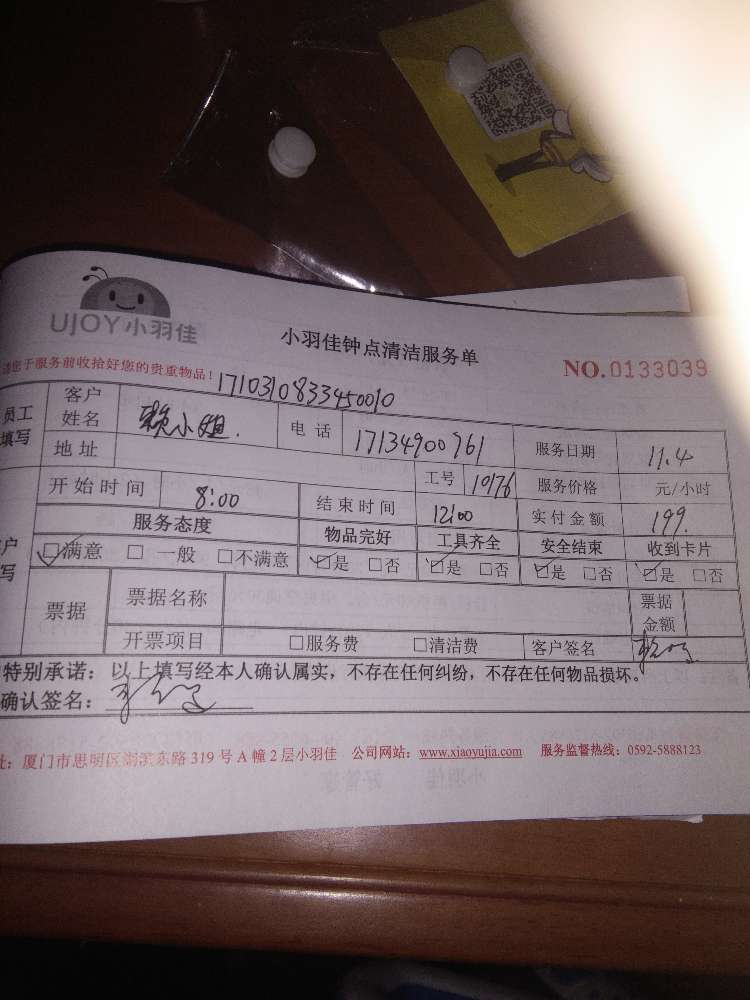 UJOY小羽佳
小羽佳钟点清洁服务单
NO.0133039
请您于服务前收拾好您的贵重物品!
1710310833450010
员工填写
客户姓名 赖小姐. 电话 17134900961 服务日期 11.4
地址 工号 10176 服务价格 元/小时
开始时间 8:00 结束时间 12:00 实付金额 199.
服务态度 物品完好 工具齐全 安全结束 收到卡片
☑满意 □一般 □不满意 ☑是 □否 ☑是 □否 ☑是 □否 ☑是 □否
户写
票据 票据名称 票据金额
开票项目 □服务费 □清洁费 客户签名
特别承诺:以上填写经本人确认属实,不存在任何纠纷,不存在任何物品损坏。
确认签名:
址:厦门市思明区湖滨东路 319 号 A 幢 2 层小羽佳 公司网站:www.xiaoyujia.com 服务监督热线:0592-5888123